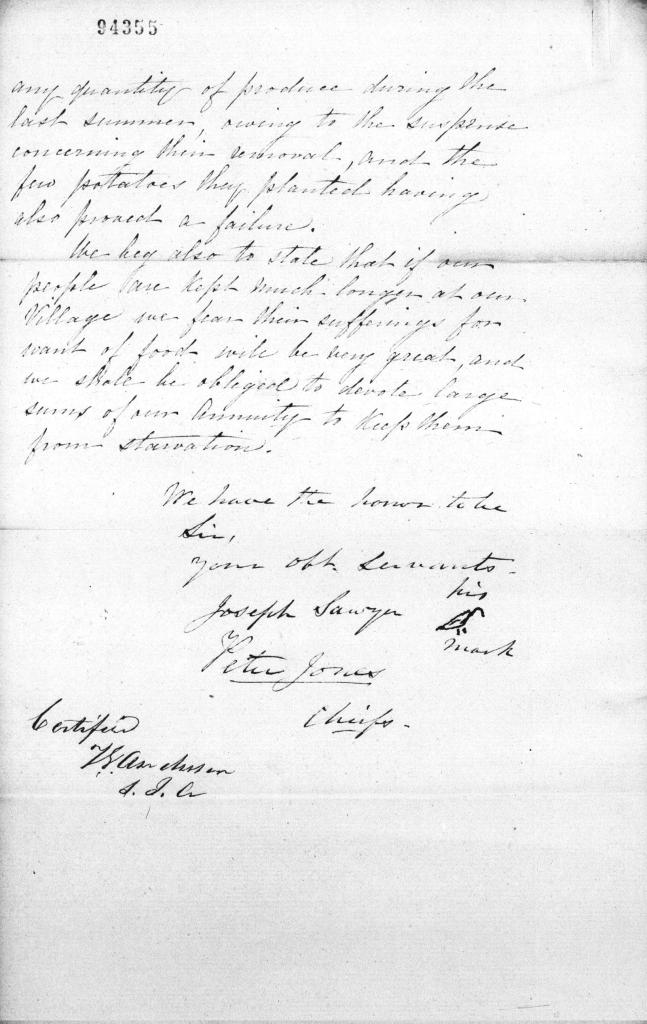 94355
any quantity of produce during the
last summer, owing to the suspense
concerning their removal, and the
few potatoes they planted having
also proved a failure.
We beg also to state that if our
people are kept much longer at our
Village we fear their sufferings for
want of food will be very great, and
we shall be obliged to devote large
sums of our Annuity to keep them
from starvation.
We have the honor to be
Sir,
your obt. servants
Joseph Sawyer his
mark
Peter Jones
Chiefs.
Certified
S. I. A